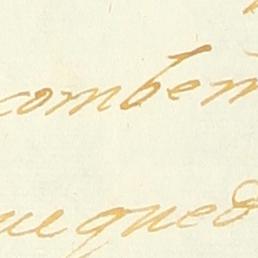 combem
ue qued